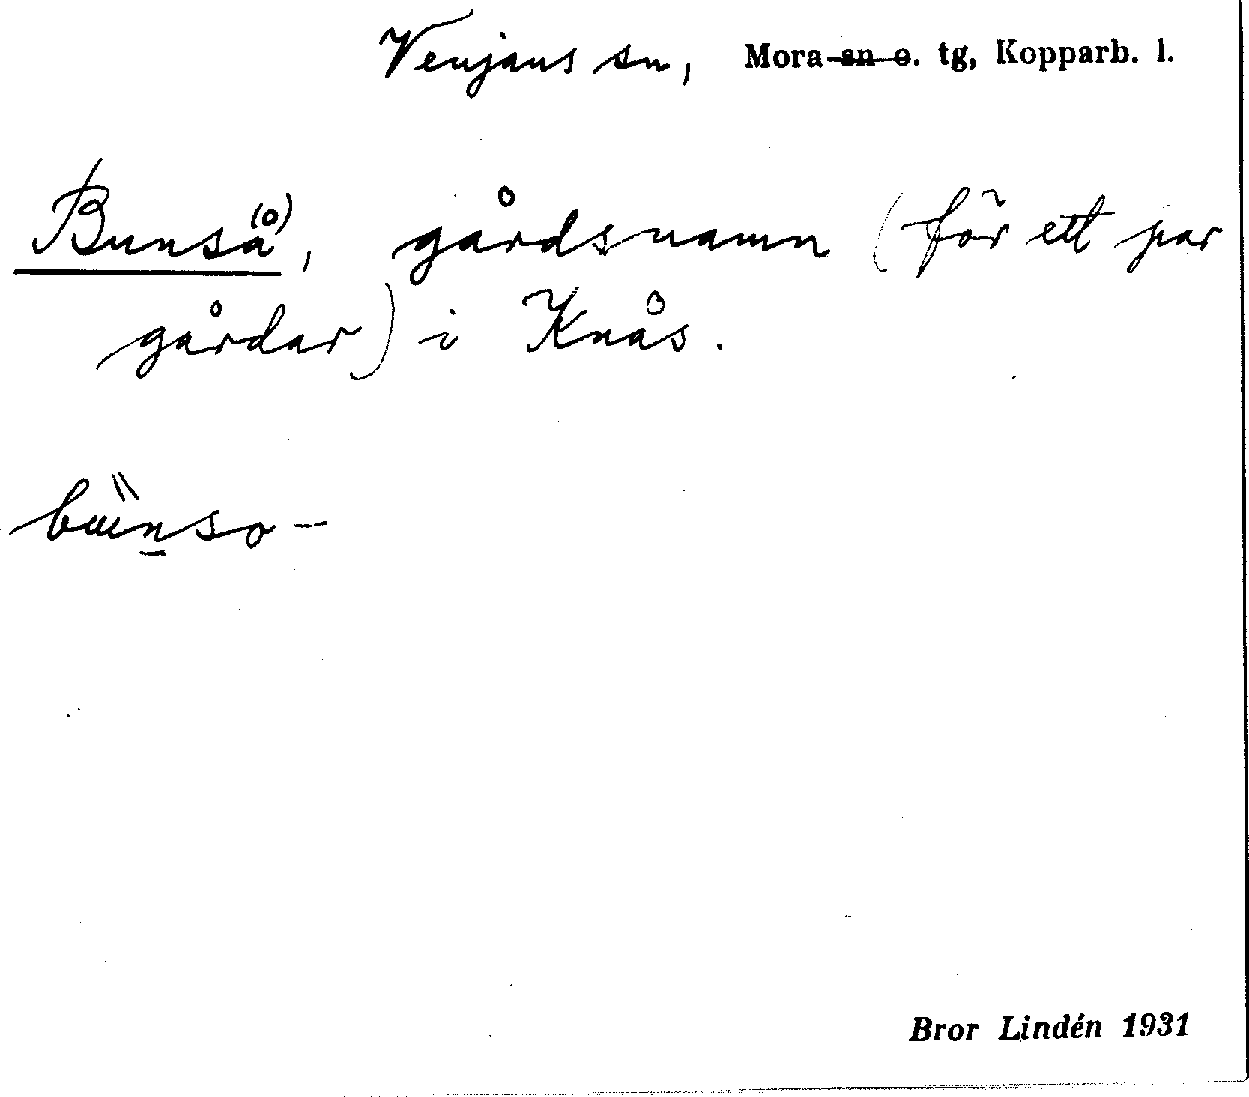 Venjans sn, Mora sn o. tg, Kopparb. l.
Buns(å), gårdsnamn (för ett par
gårdar) i Knås.
bunso-
Bror Lindén 1931